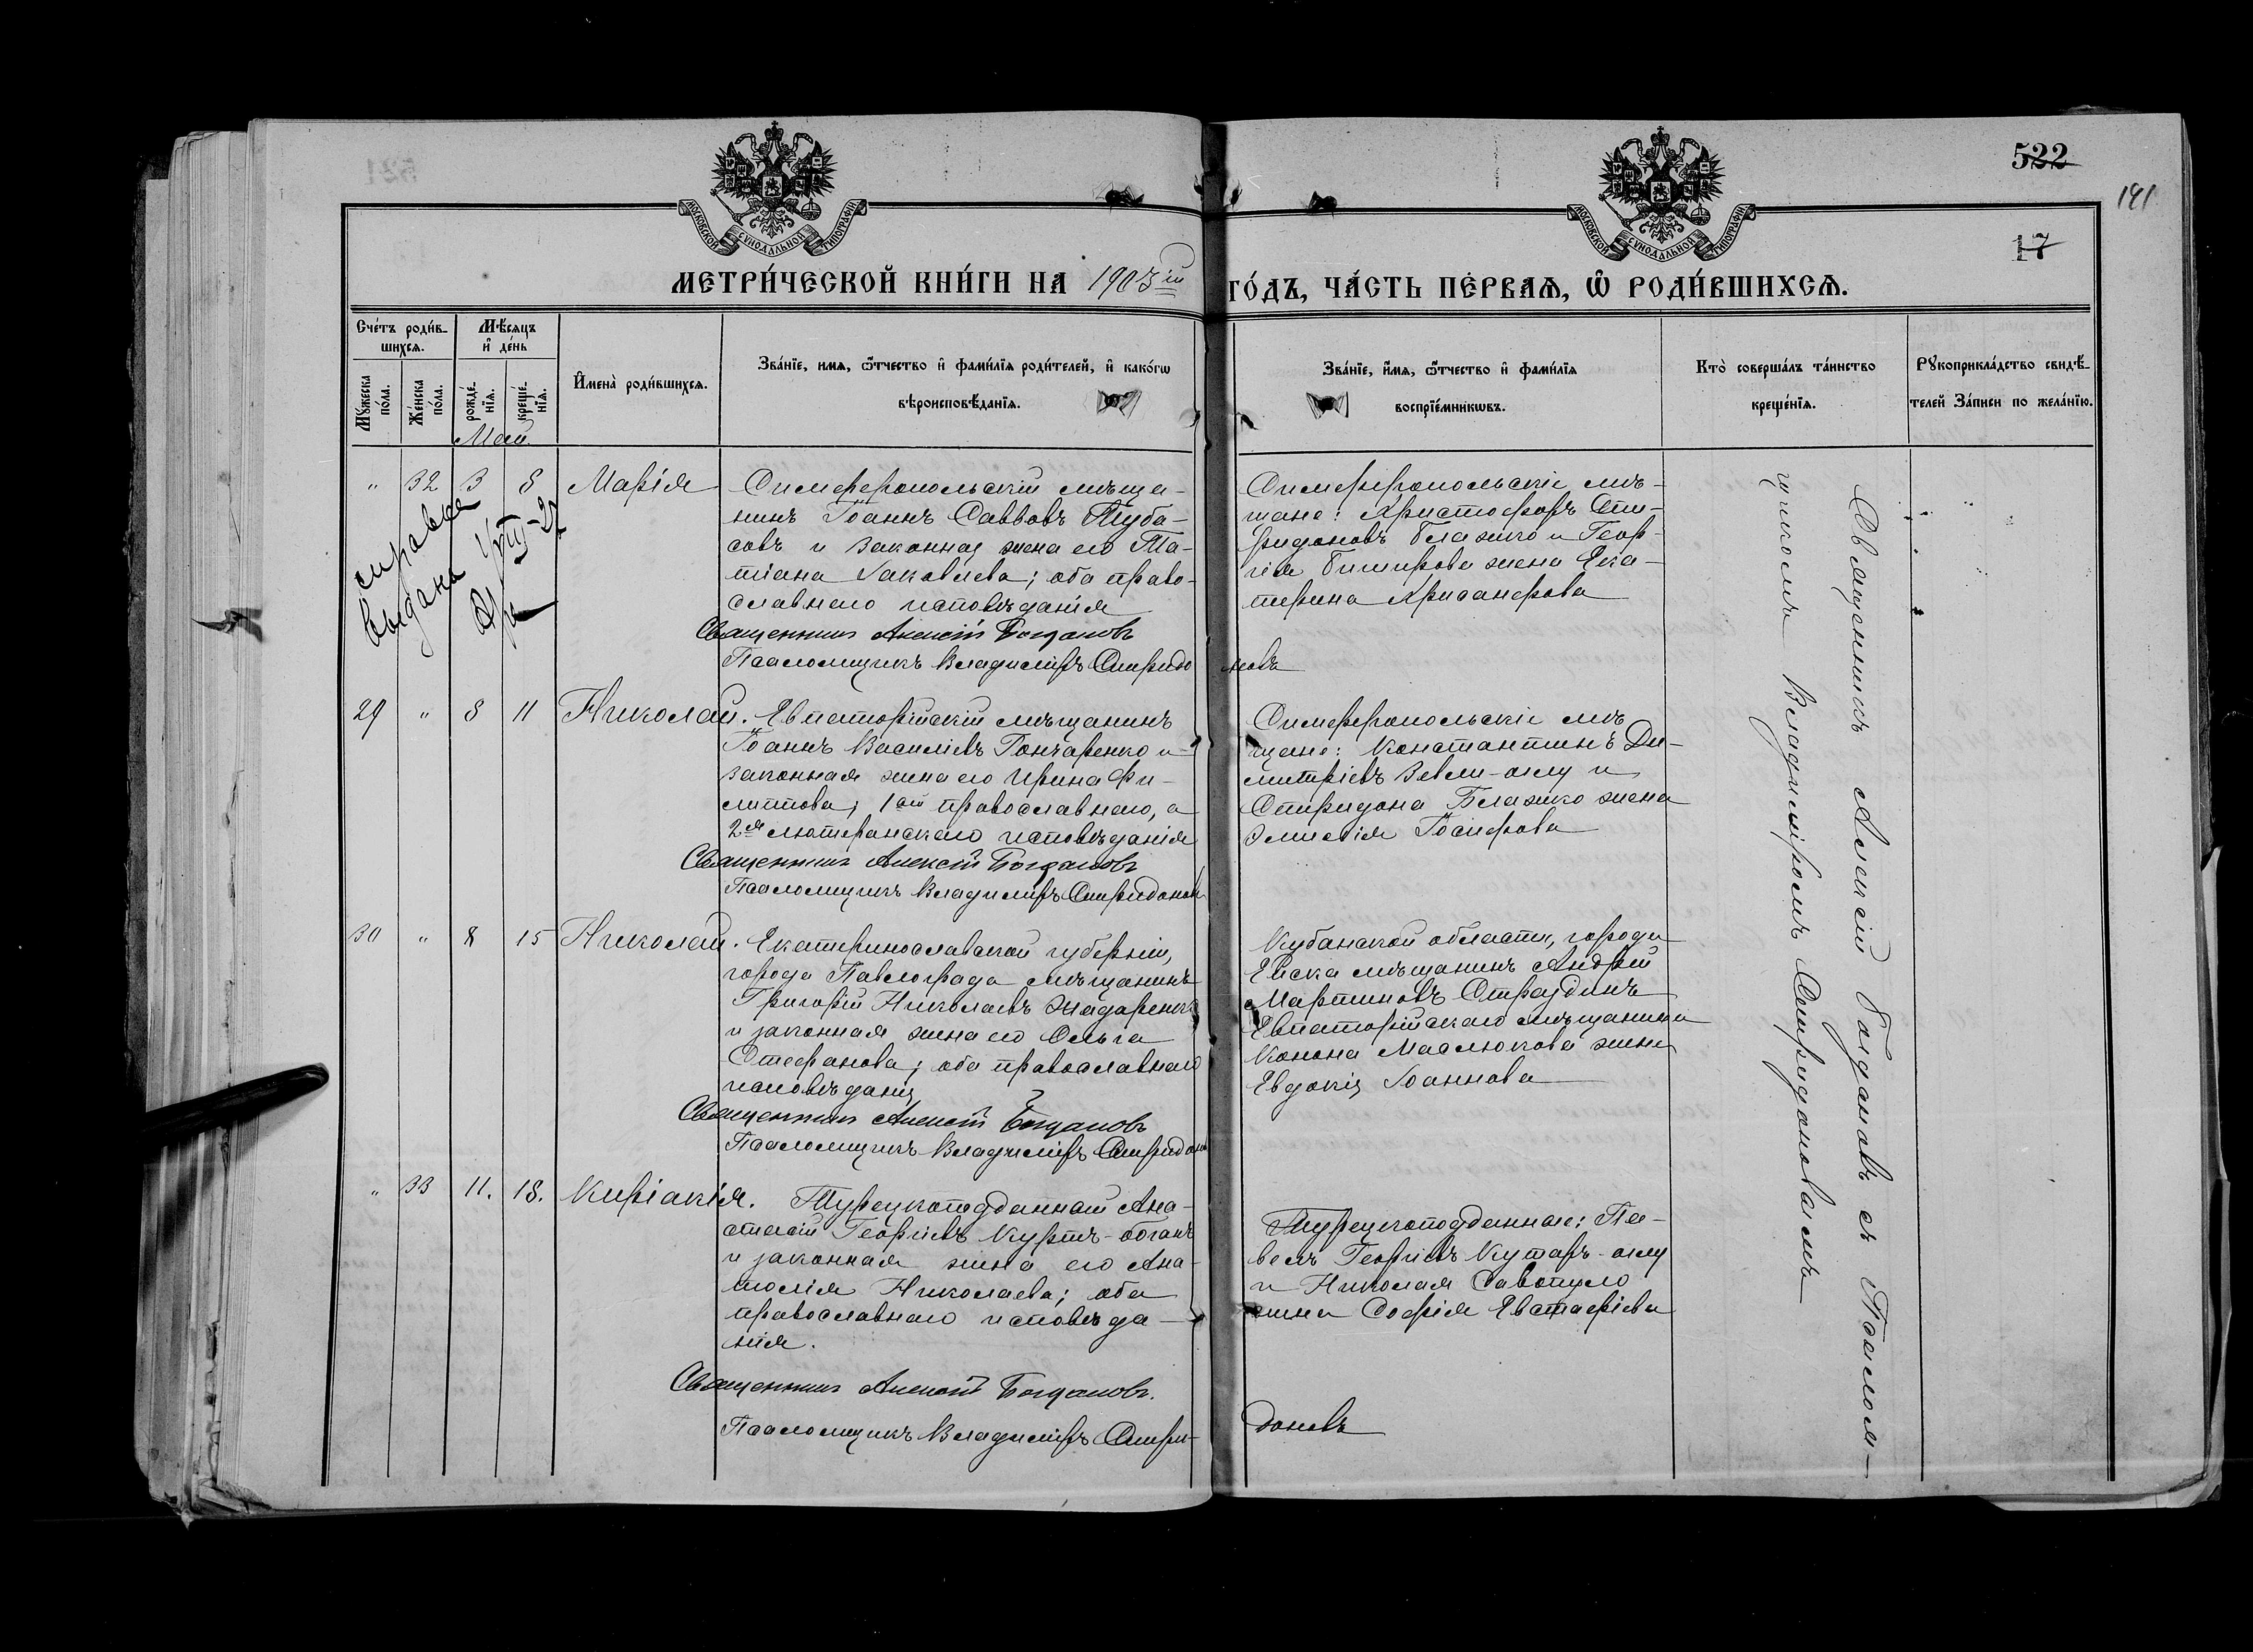 522
191
17
МОСКОВСКОЙ СУНОДАЛЬНОЙ ТИПОГРАФІИ
МОСКОВСКОЙ СУНОДАЛЬНОЙ ТИПОГРАФІИ
МЕТРИ́ЧЕСКОЙ КНИ́ГИ НА 1903 й ГО́ДЪ, ЧА́СТЬ ПЕ́РВАЯ, Ѡ РОДИ́ВШИХСѦ.
Сче́тъ роди́в-
шихсѧ.
Мѣ́сяцъ
и҆ де́нь
Мꙋ́жеска по́ла.
Же́нска по́ла.
рожде́-
нїѧ.
креще́-
нїѧ.
И҆мена̀ роди́вшихсѧ.
Зва́нїе, имѧ, ѻ҆́тчество и҆ фами́лїѧ роди́телей, и҆ како́гѡ
вѣроисповѣ́данїѧ.
Зва́нїе, и҆́мѧ, ѻ҆́тчество и҆ фами́лїѧ
воспрїе́мникѡвъ.
Кто̀ соверша́лъ та́инство
креще́нїѧ.
Рꙋкоприкла́дство свидѣ́-
телей За́писи по жела́нїю.
Май.
" 32 3 8 Марія
справка
выдана
Симферопольскій мѣща-
нинъ Іоаннъ Саввовъ Туба-
совъ и законная жена его Та-
тіана Іаковлева; оба право-
славнаго исповѣданія
Священникъ Алексій Богдановъ
Псаломщикъ Владиміръ Спиридоновъ
Симферопольскіе мѣ-
щане: Христофоръ Спи-
ридоновъ Блажко и Геор-
гія жена Ека-
терина Хрисанфова
29 " 8 11 Николай.
Евпаторійскій мѣщанинъ
Іоаннъ Василіевъ Гончаренко и
законная жена его Ирина Фи-
липпова; 1ый православнаго, а
2я лютеранскаго исповѣданія
Священникъ Алексій Богдановъ
Псаломщикъ Владиміръ Спиридоновъ
Симферопольскіе мѣ-
щане: Константинъ Ди-
митріевъ Зевли-оглу и
Спиридона Блажко жена
Іосифова
30 " 8 15 Николай.
Екатеринославской губерніи,
города Павлограда мѣщанинъ
Григорій Николаевъ Жадаренко
и законная жена его Ольга
Стефанова; оба православнаго
исповѣданія
Священникъ Алексій Богдановъ
Псаломщикъ Владиміръ Спиридоновъ
Кубанской области, города
Ейска мѣщанинъ Андрей
Мартиновъ Страздинъ
Евпаторійскаго мѣщанина
Конона Маслюкова жена
Евдокія Іоаннова
" 33 11. 18. Киріакія.
Турецкоподданный Ана-
стасій Георгіевъ Куртъ-огланъ
и законная жена его Ана-
толія Николаева; оба
православнаго исповѣда-
нія.
Священникъ Алексій Богдановъ.
Псаломщикъ Владиміръ Спиридоновъ
Турецкоподданные: Па-
велъ Георгіевъ Кутаръ-оглу
и Николая Савопуло
жена Софія Евстафіева
Священникъ Алексій Богдановъ съ Псалом-
щикомъ Владиміромъ Спиридоновымъ